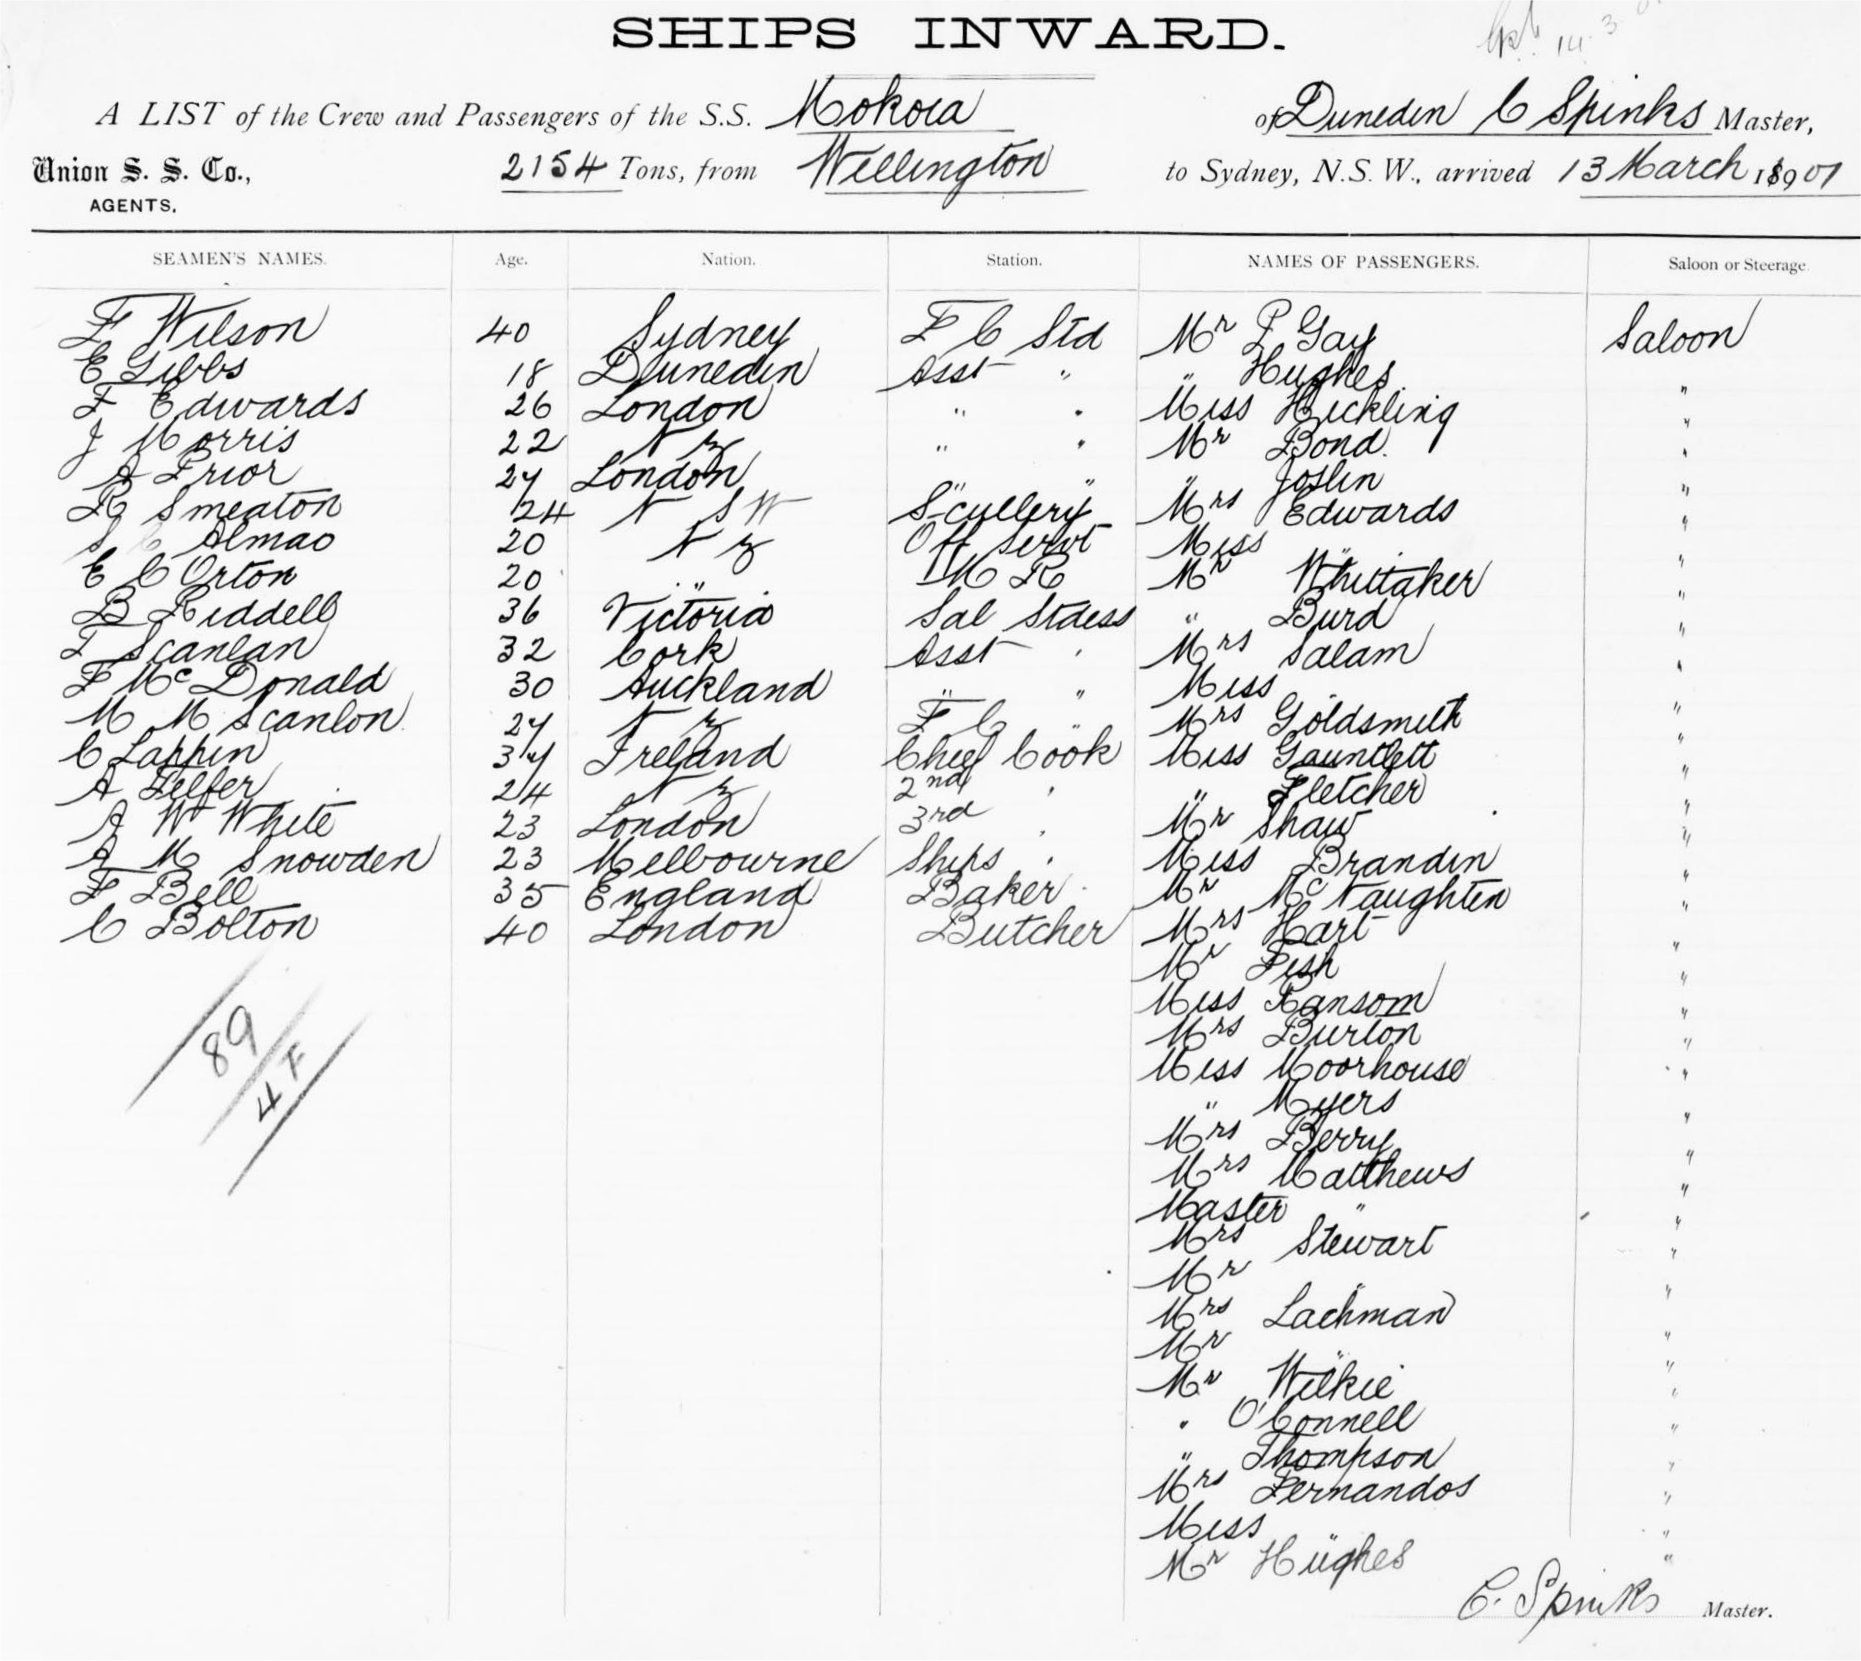 SHIPS INWARD.
A LIST of the Crew and Passengers of the S.S. Mokoia of Dunedin C Spinks Master,
Union S. S. Co., AGENTS, 2154 Tons, from Wellington to Sydney, N.S.W., arrived 13 March 1901
SEAMEN'S NAMES. Age. Nation. Station. NAMES OF PASSENGERS. Saloon or Steerage
F Wilson 40 Sydney F C Std Mr P Gay Saloon
E Gibbs 18 Dunedin Asst " " Hughes "
F Edwards 26 London " " Miss Hickling "
J Morris 22 N Z " " Mr Bond "
A Prior 27 London " " " Joslin "
R Smeaton 24 N S W Scullery Mrs Edwards "
Almao 20 N Z Off Servt Miss " "
E C Orton 20 " M R Mr Whittaker "
B Riddell 36 Victoria Sal Stdess " Burd "
T Scanlan 32 Cork Asst " Mrs Salam "
F McDonald 30 Auckland " " Miss "
M M Scanlon 27 N Z F C " Mrs Goldsmith "
C Lappin 37 Ireland Chief Cook Miss Gauntlett "
A Telfer 24 N Z 2nd " " Fletcher "
A W White 23 London 3rd " Mr Shaw "
A M Snowden 23 Melbourne Ships " Miss Brandin "
F Bell 35 England Baker Mr McNaughten "
C Bolton 40 London Butcher Mrs Hart "
Mr Fish "
Miss Ransom "
Mrs Burton "
Miss Moorhouse "
" Myers "
Mrs Berry "
Mrs Matthews "
Master " "
Mrs Stewart "
Mr " "
Mrs Lachman "
Mr " "
Mr Wilkie "
" O'Connell "
" Thompson "
Mrs Fernandos "
Miss " "
Mr Hughes "
89
4 F
C. Spinks Master.